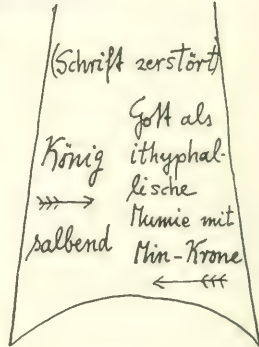 (Schrift zerstört)
König
salbend
Gott als
ithyphal-
lische
Mumie mit
Min-Krone